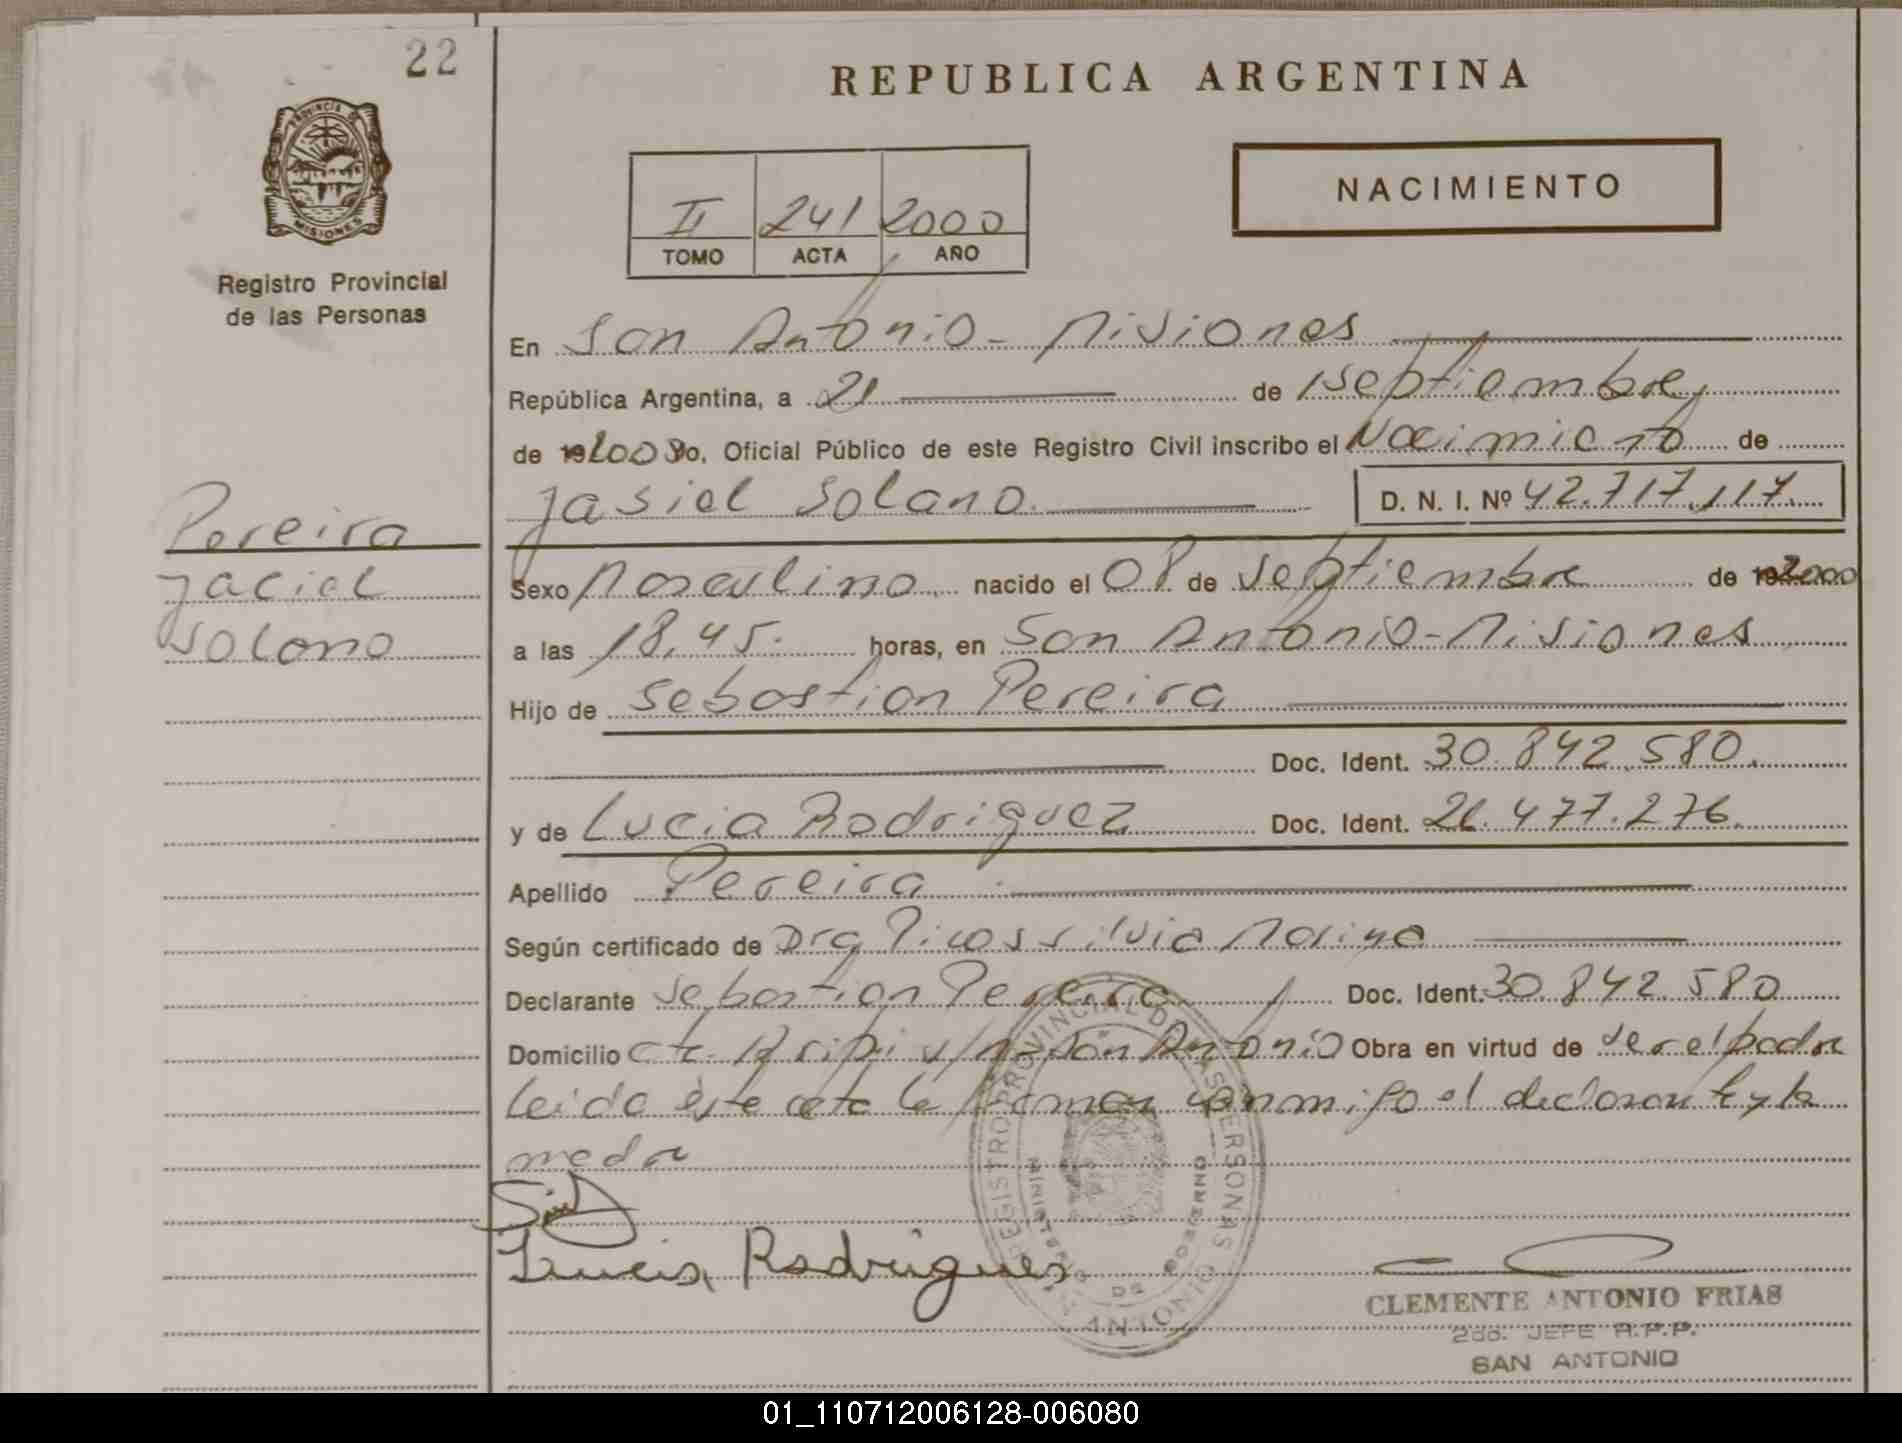 22
REPUBLICA ARGENTINA
PROVINCIA DE
MISIONES
Registro Provincial
de las Personas
NACIMIENTO
II 241 2000
TOMO ACTA AÑO
En San Antonio - Misiones
República Argentina, a 21 de septiembre
de 192000 Yo, Oficial Público de este Registro Civil inscribo el Nacimiento de
Jasiel Solano D. N. I. Nº 42.717.117
Pereira
Jaciel
Solano
Sexo Masculino nacido el 08 de septiembre de 192000
a las 18,45 horas, en San Antonio - Misiones
Hijo de Sebastian Pereira
Doc. Ident. 30.842.580.
y de Lucia Rodriguez Doc. Ident. 26.477.276.
Apellido Pereira
Según certificado de Dra Picoss silvia Marina
Declarante Sebastian Pereira Doc. Ident. 30.842.580
Domicilio San Antonio Obra en virtud de ser el padre
Leida este acta la firman conmigo el declarante y la
madre
Lucia Rodrigues
REGISTRO PROVINCIAL DE LAS PERSONAS
MINISTERIO DE GOBIERNO
ANTONIO
CLEMENTE ANTONIO FRIAS
2do. JEFE R.P.P.
SAN ANTONIO
01_110712006128-006080